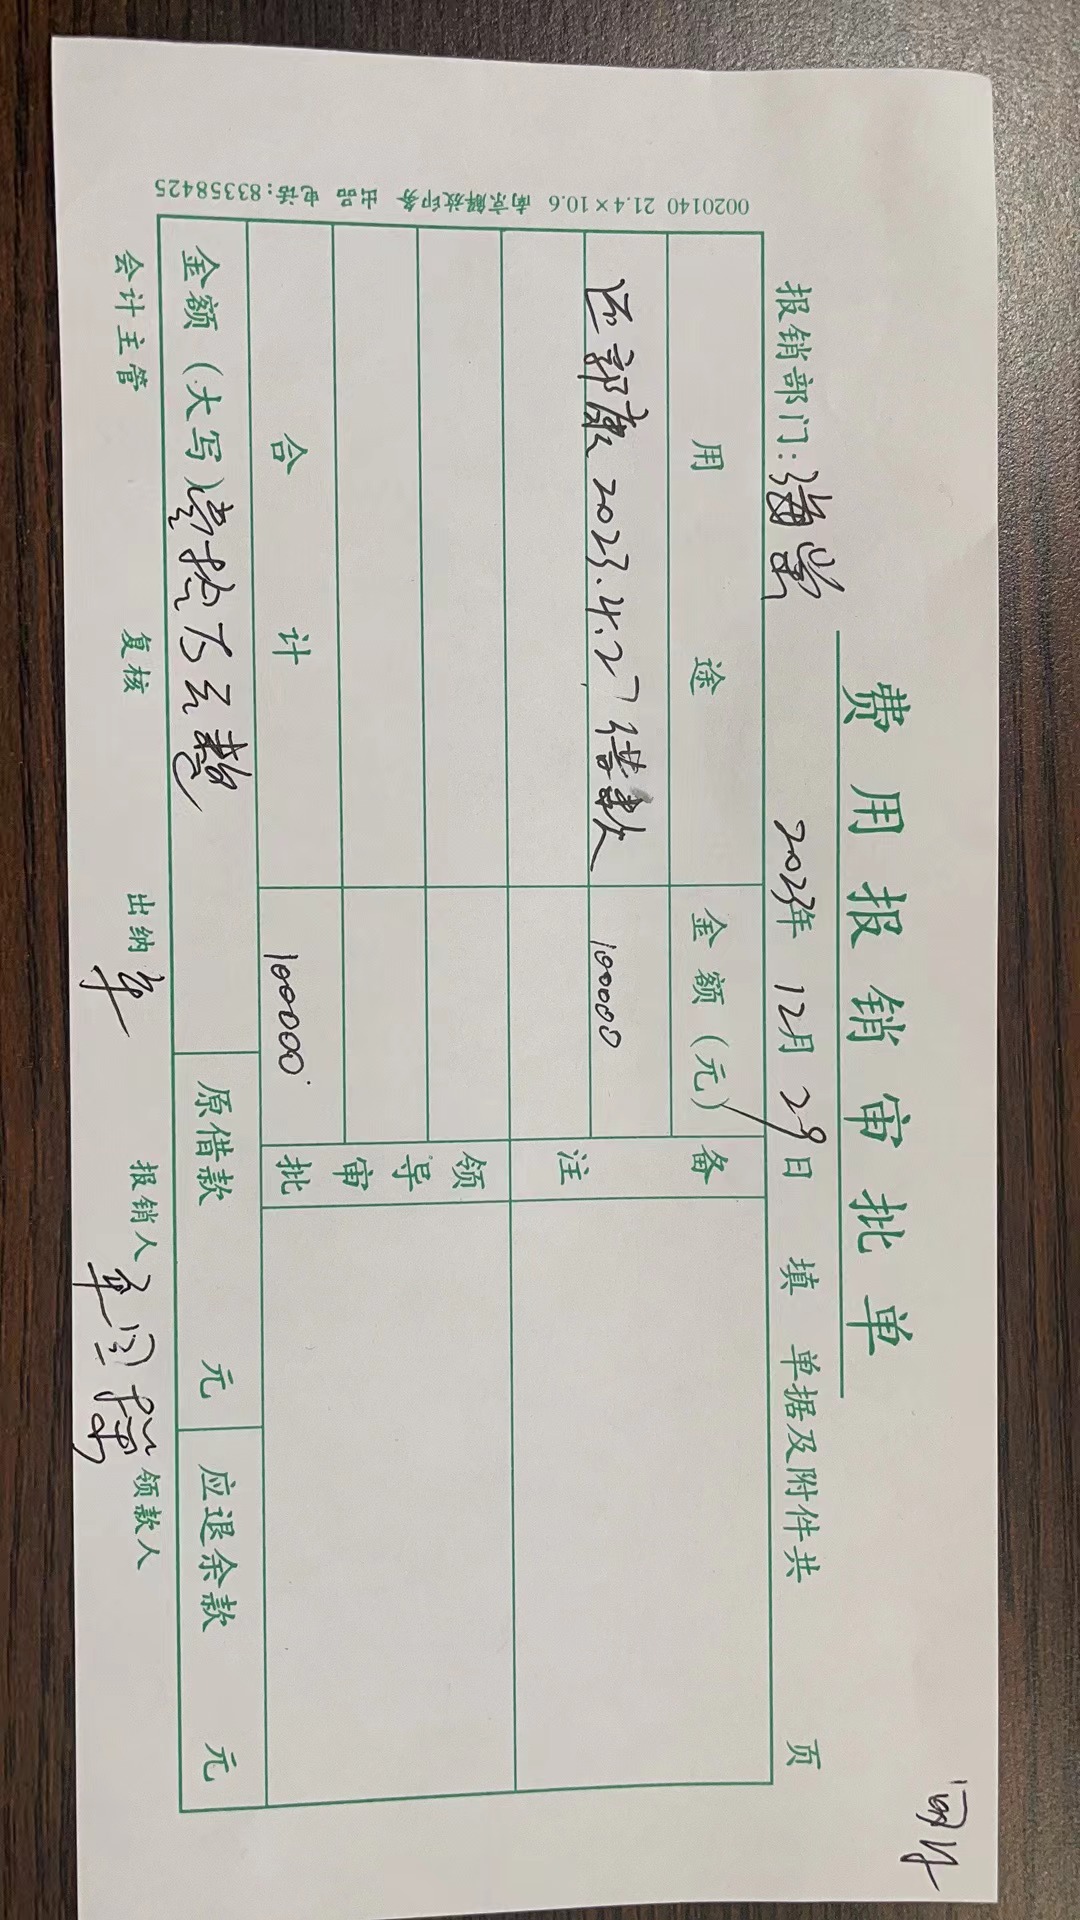 费用报销审批单
报销部门: 2023年 12月 29日 填 单据及附件共 页
用途 金额(元) 备注
还郭康2023.4.27借款 100000
领导审批
合计 100000
金额(大写)壹拾万元整 原借款 元 应退余款 元
会计主管 复核 出纳 报销人 领款人
0020140 21.4×10.6 南京解放印务 出品 电话:83358425